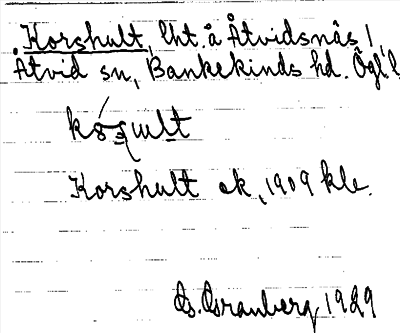 Korshult, lht. å Åtvidsnäs 1,
Åtvid sn, Bankekinds hd. Ögl. l
Korshult ek, 1909 kle.
G. Granberg 1929